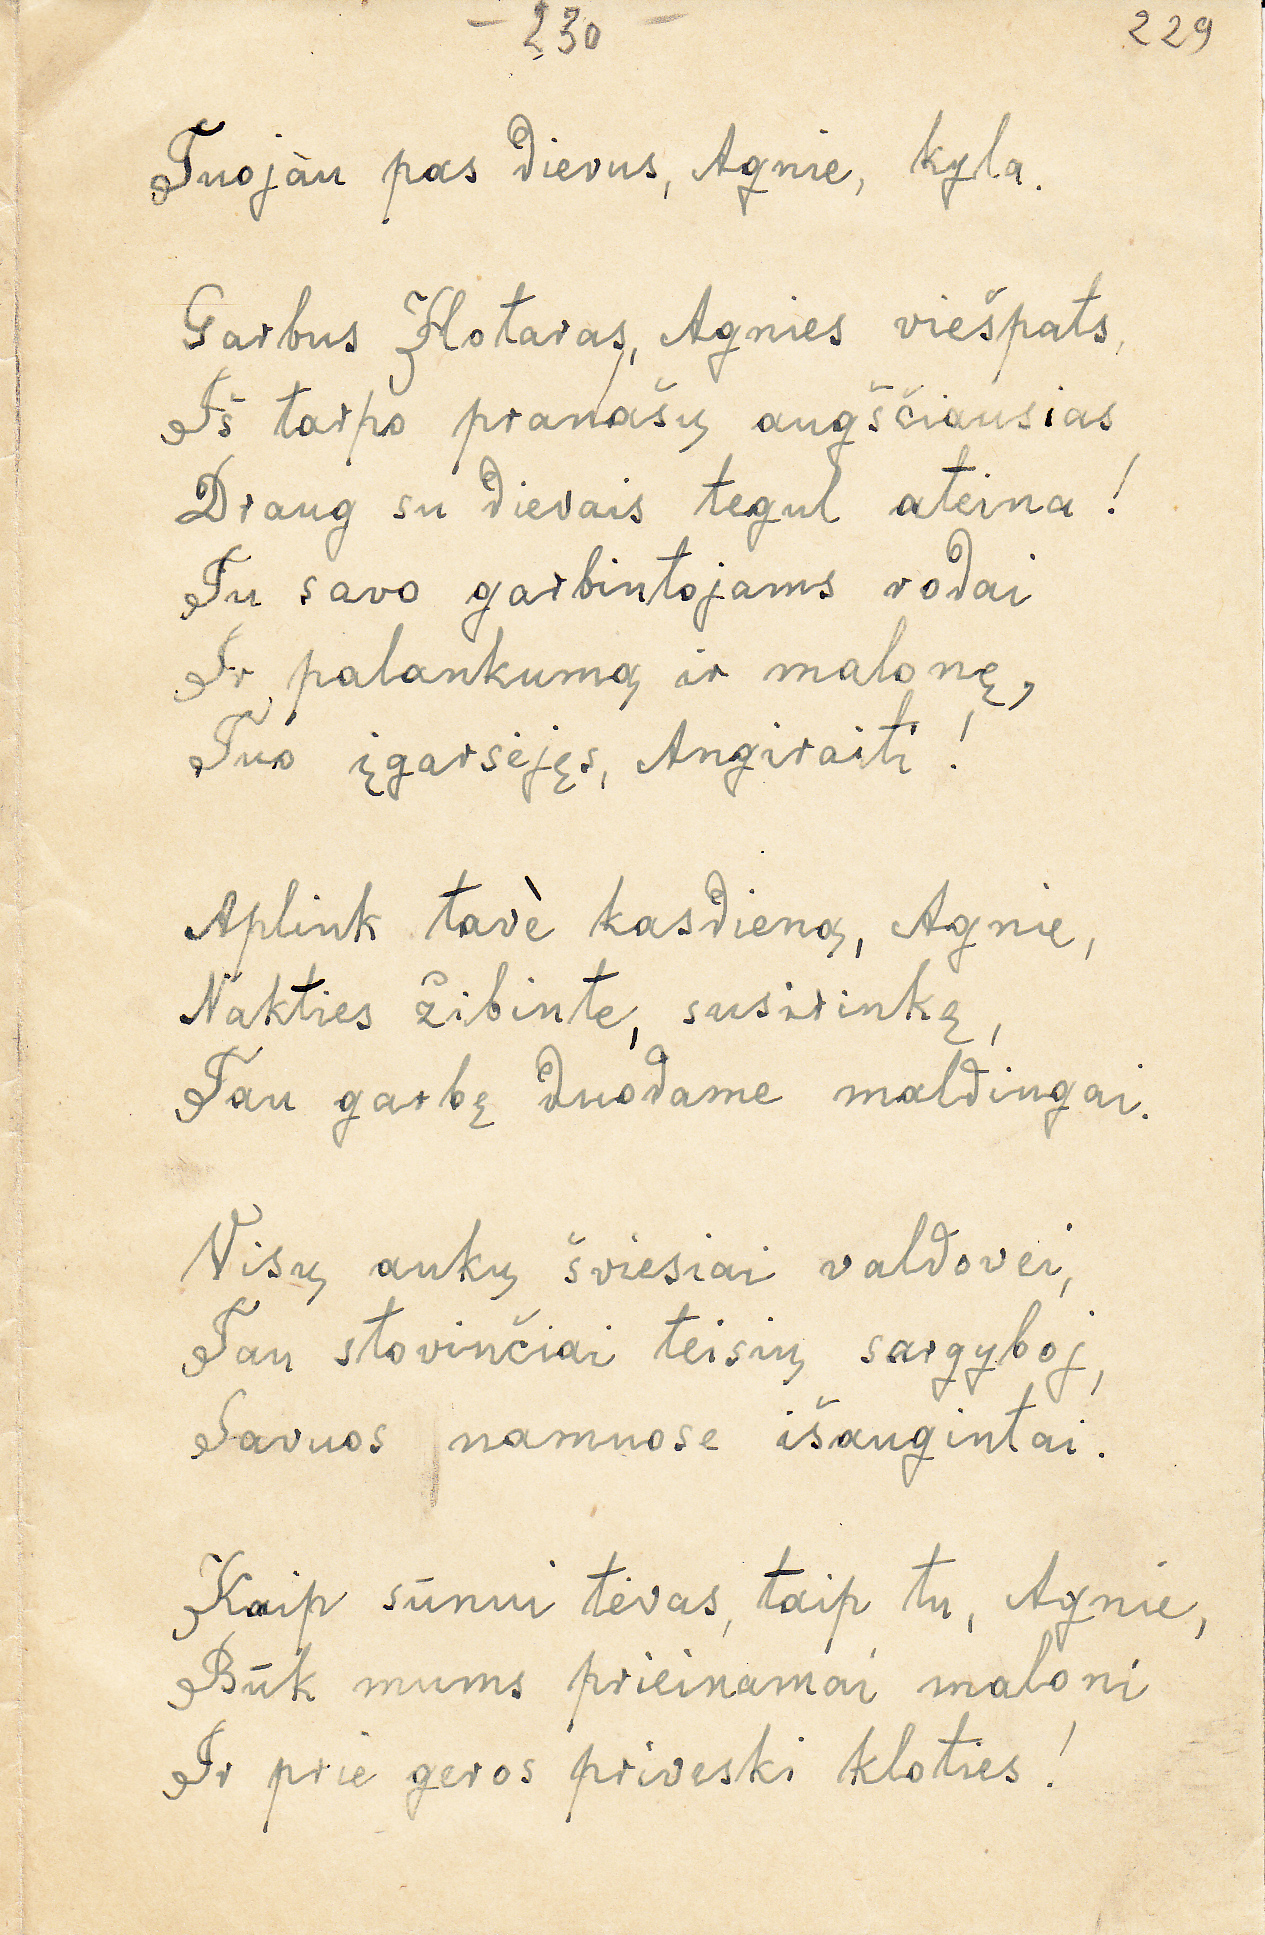 - 230 -
229
Tuojàu pas dievus, Agnie, kyla.
Garbus Hotaras, Agnies viešpats,
Iš tarpo pranašų augščiausias
Draug su dievais tegul ateina!
Tu savo garbintojams rodai
Ir palankumą ir malonę,
Tuo įgarsėjęs, Angiraiti!
Aplink tavè kasdieną, Agnie,
Nakties žibinte, susirinkę,
Tau garbę duodame maldingai.
Visų aukų šviesiai valdovei,
Tau stovinčiai teisių sargyboj,
Savuos namuose išaugintai.
Kaip sūnui tėvas, taip tu, Agnie,
Būk mums prieinamai maloni
Ir prie geros priveski kloties!